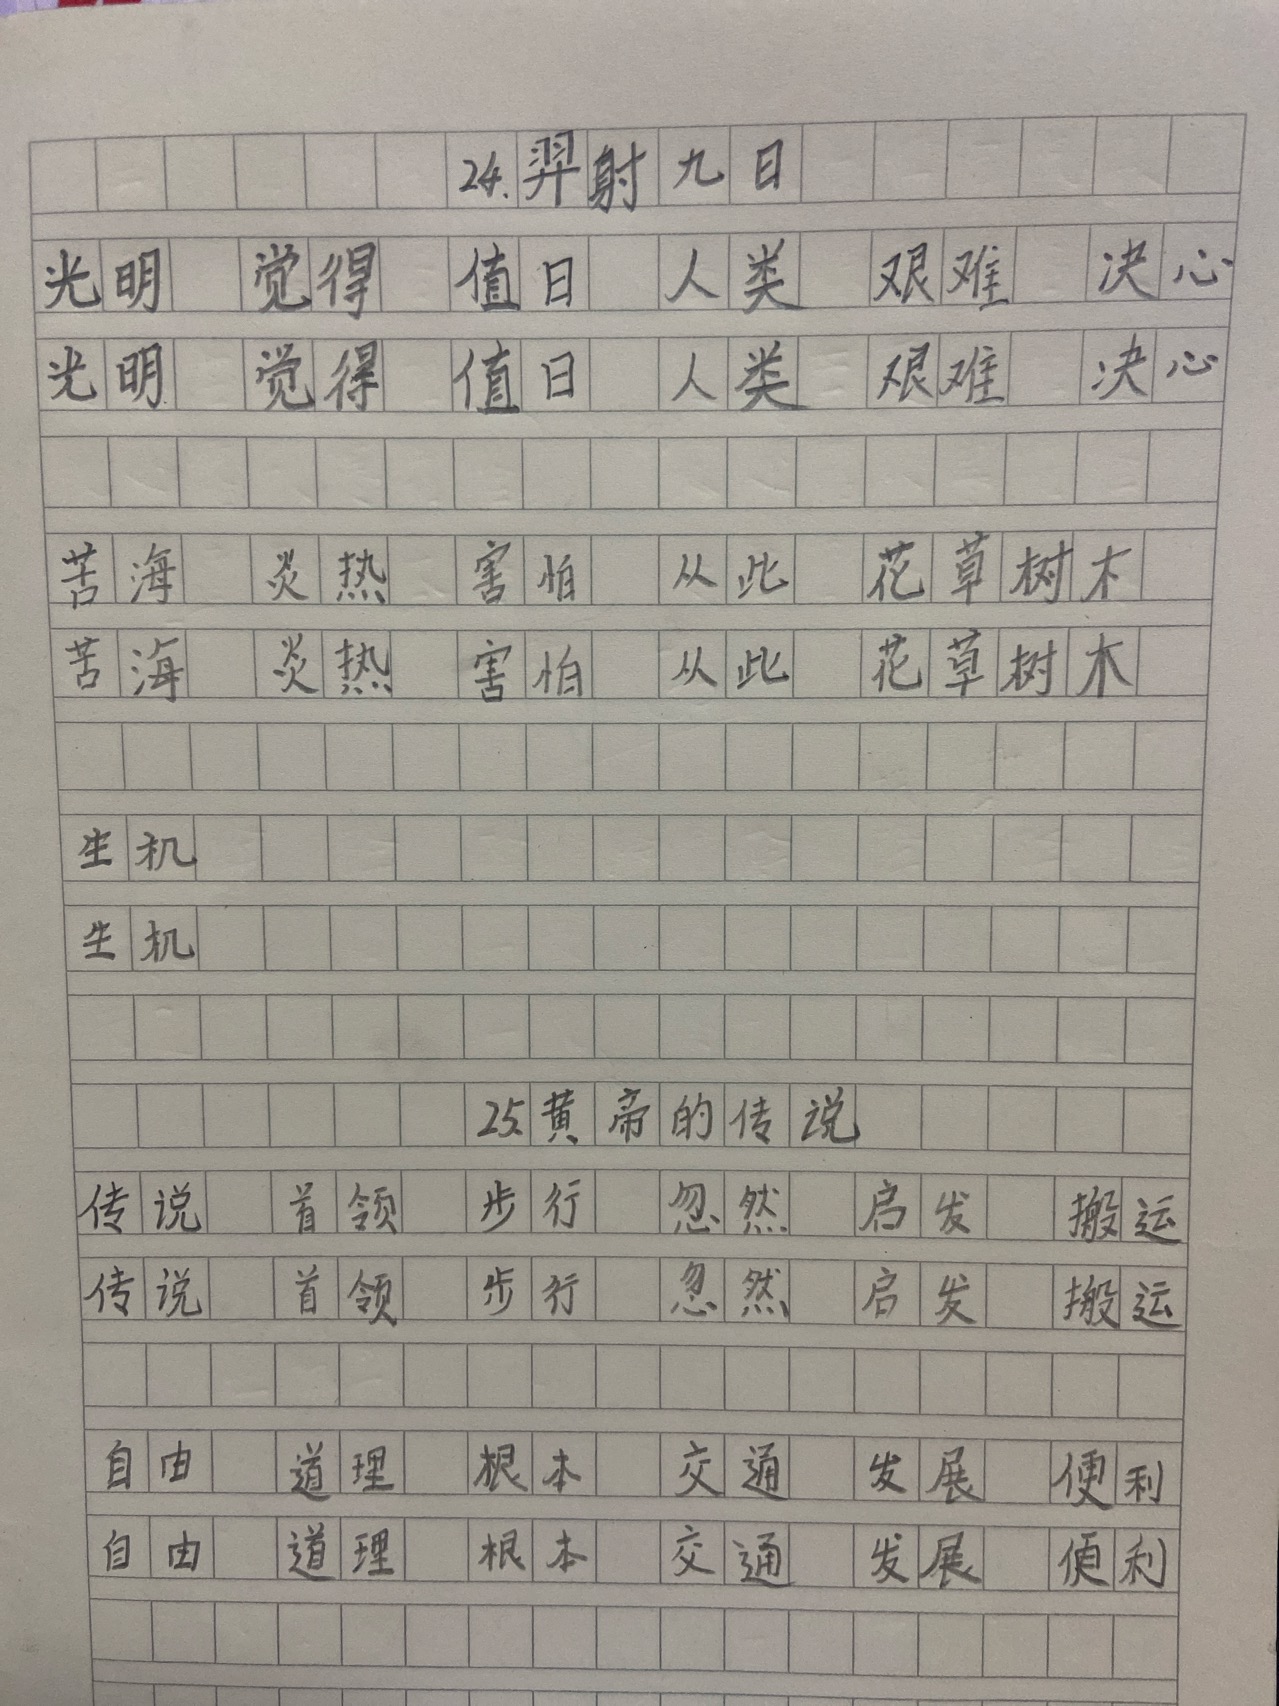 24.羿射九日
光明 觉得 值日 人类 艰难 决心
光明 觉得 值日 人类 艰难 决心
苦海 炎热 害怕 从此 花草树木
苦海 炎热 害怕 从此 花草树木
生机
生机
25.黄帝的传说
传说 首领 步行 忽然 启发 搬运
传说 首领 步行 忽然 启发 搬运
自由 道理 根本 交通 发展 便利
自由 道理 根本 交通 发展 便利